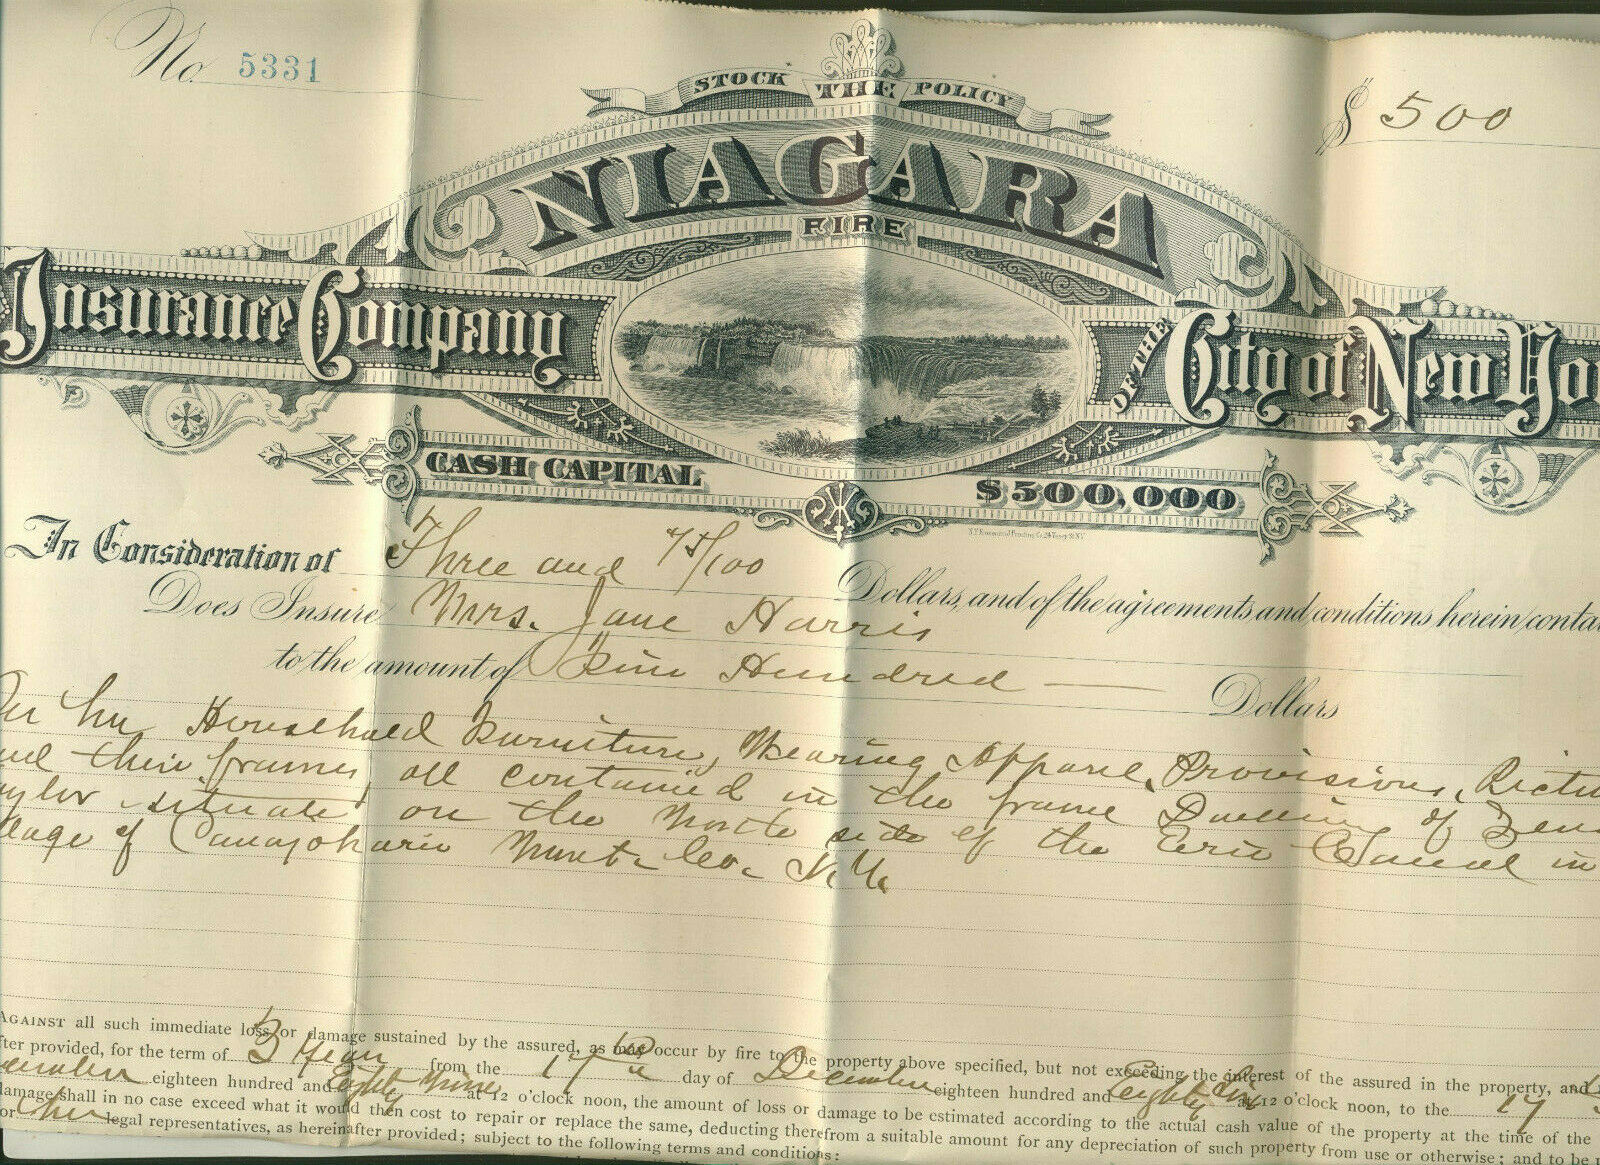 No. 5331
$ 500
STOCK THE POLICY
NIAGARA
FIRE
Insurance Company
OF THE
City of New Yo
CASH CAPITAL $500,000
In Consideration of Three and 75/100 Dollars, and of the agreements and conditions herein contai
Does Insure Mrs. Jane Harris
to the amount of Five Hundred — Dollars
On her Household Furniture, Wearing Apparel, Provisions, Pictu
and their frames, all contained in the frame Dwelling of
situate on the North side of the Erie Canal in
llage of Canajoharie Mont. Co. N.Y.
AGAINST all such immediate loss or damage sustained by the assured, as may occur by fire to the property above specified, but not exceeding the interest of the assured in the property, and
fter provided, for the term of 3 Years from the 17th day of December eighteen hundred and Eighty Six at 12 o'clock noon, to the 17
December eighteen hundred and Eighty Nine at 12 o'clock noon, the amount of loss or damage to be estimated according to the actual cash value of the property at the time of the
damage shall in no case exceed what it would then cost to repair or replace the same, deducting therefrom a suitable amount for any depreciation of such property from use or otherwise; and to be
or her legal representatives, as hereinafter provided; subject to the following terms and conditions: